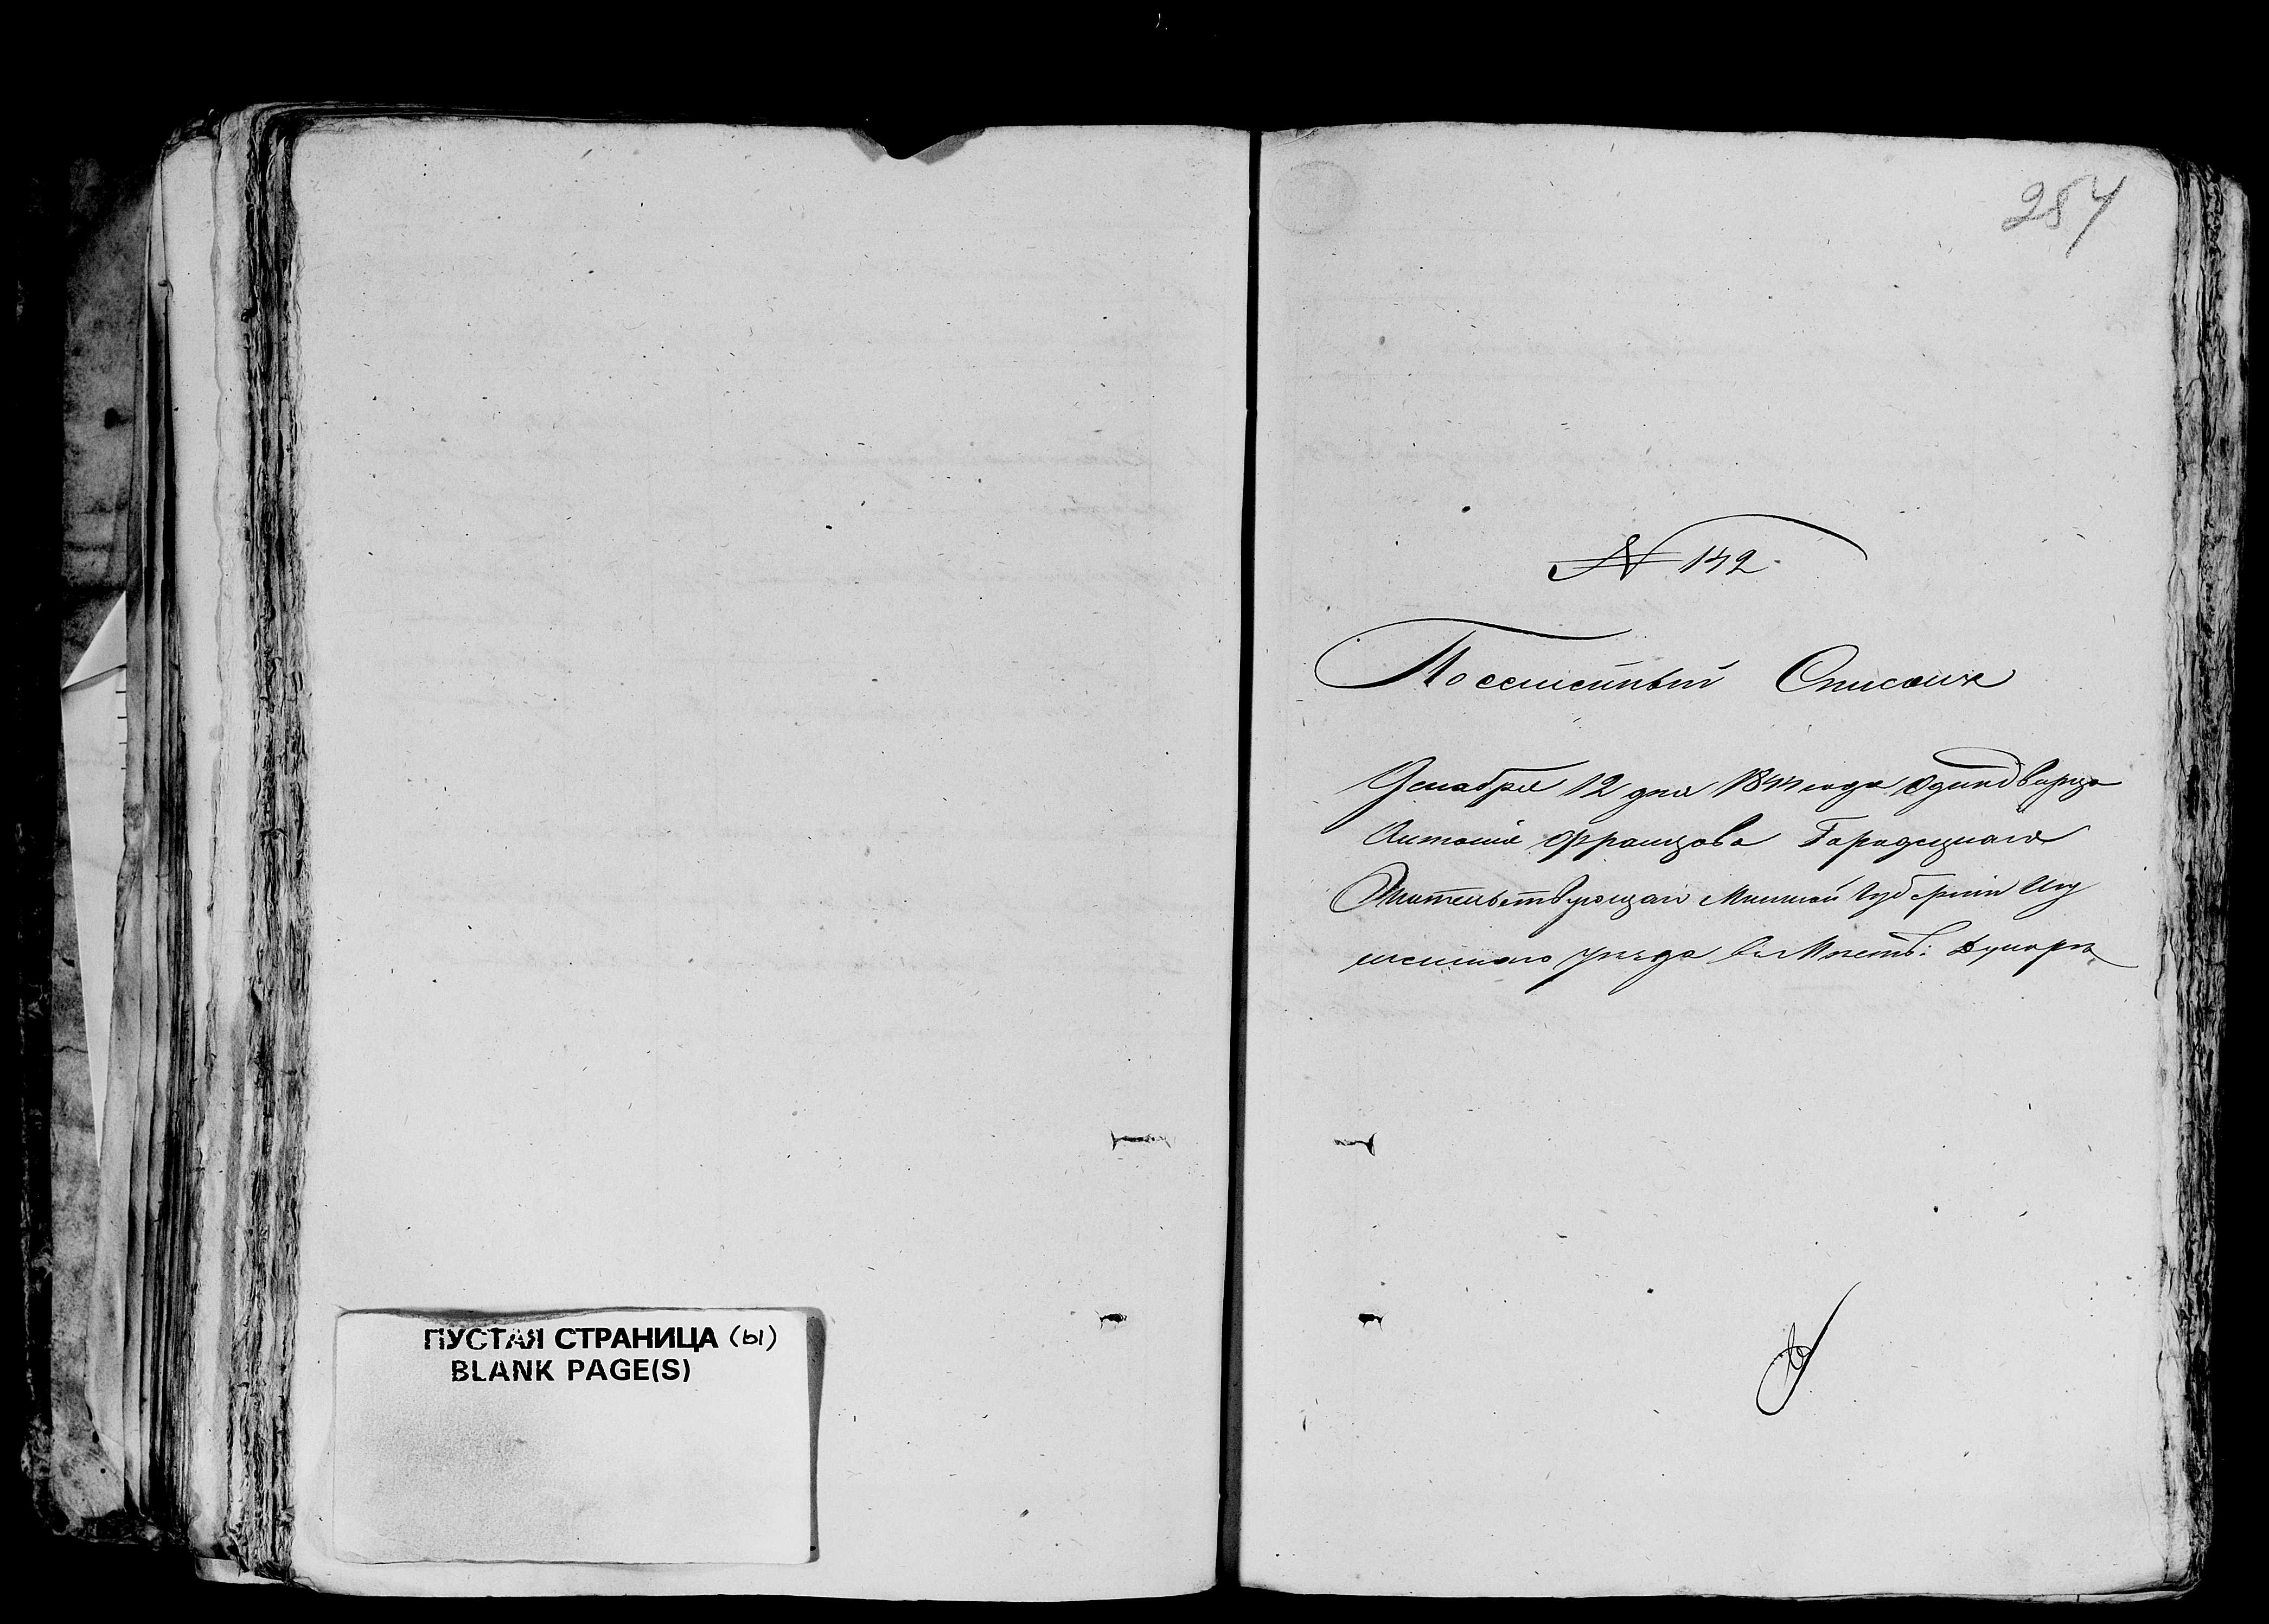 ПУСТАЯ СТРАНИЦА (ы)
BLANK PAGE(S)
254
№ 142.
Посемейный Списокъ
Декабря 12 дня 1844 года однодворца
Антонія Францова Городецкаго
Жительствующаго Минской Губерніи Игу
менскаго уѣзда въ Мѣстѣ: